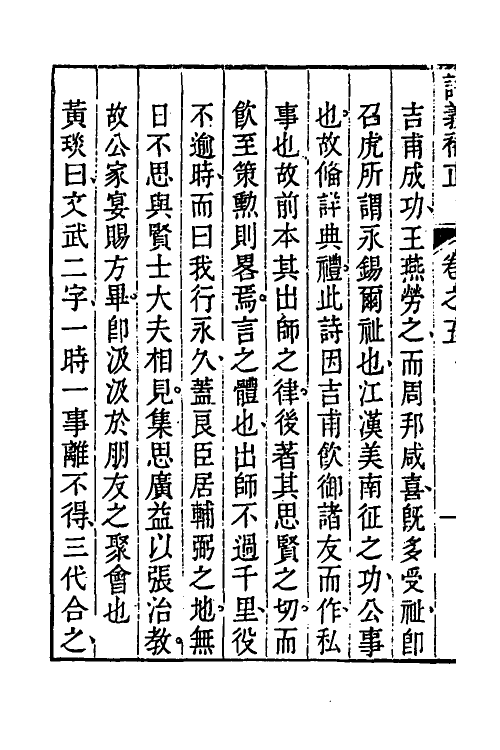 詩義補正
卷之五
吉甫成功王燕勞之、而周邦咸喜、旣多受祉、卽
召虎所謂永錫爾祉也、江漢美南征之功、公事
也、故偹詳典禮、此詩因吉甫飲御諸友而作、私
事也、故前本其出師之律、後著其思賢之切、而
飲至策勳則畧焉、言之體也、出師不過千里、役
不逾時、而曰我行永久、蓋良臣居輔弼之地、無
日不思與賢士大夫相見、集思廣益、以張治教、
故公家宴賜方畢、卽汲汲於朋友之聚會也
黃琰曰文武二字、一時一事離不得、三代合之、